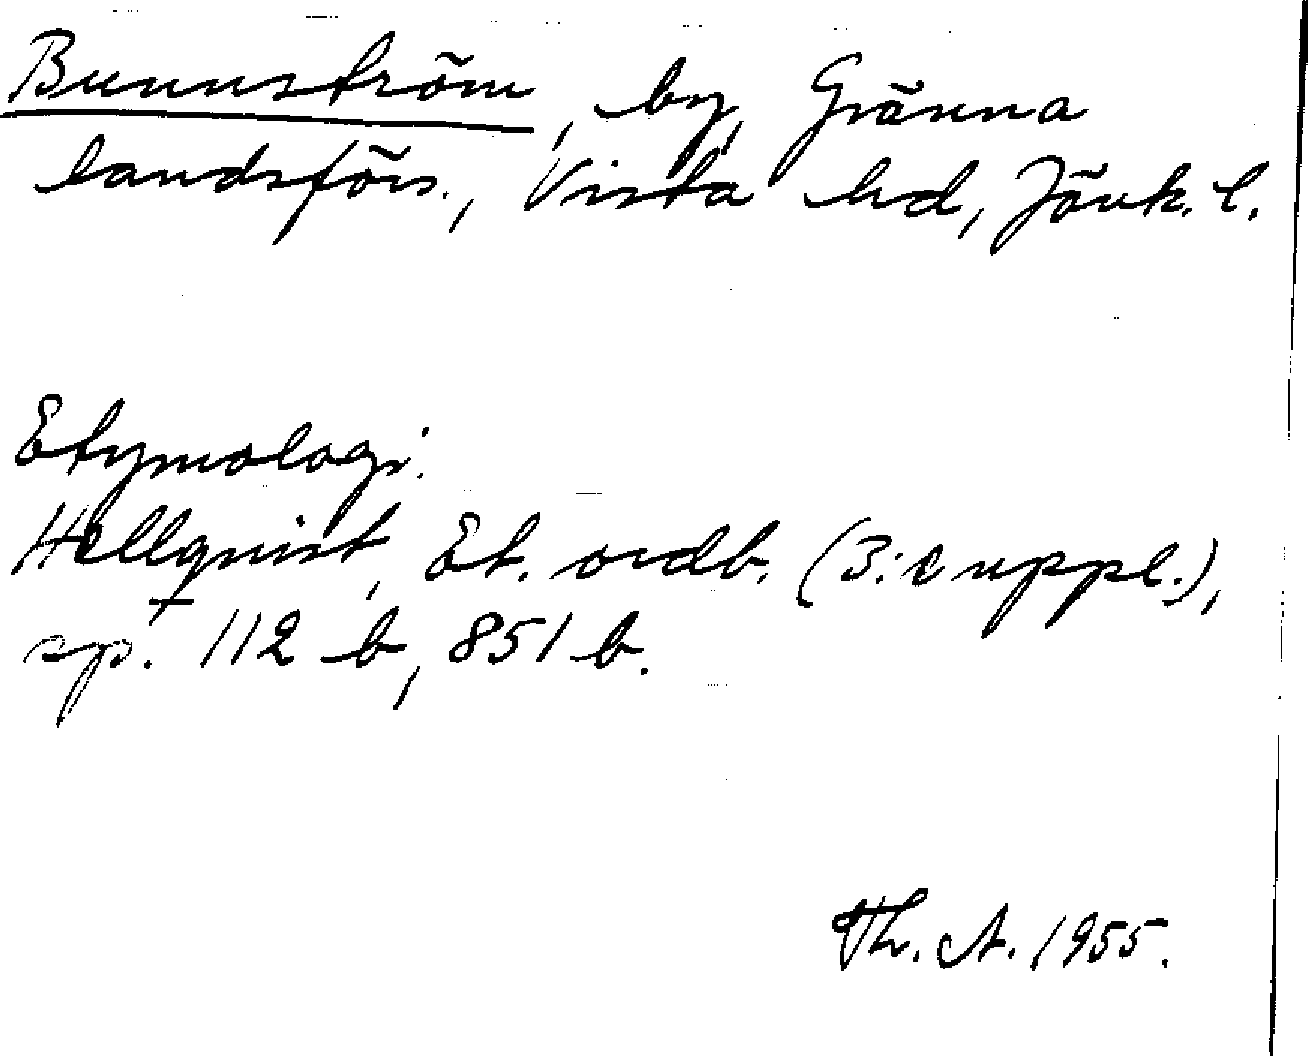 Bunnström, by, Gränna
landsförs., Vista hd, Jönk. l.
Etymologi.
Hellquist, Et. ordb. (3:e uppl.),
sp. 112 b, 851 b.
Th. A. 1955.